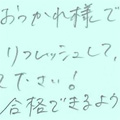 おつかれ様で
リフレッシュして,
ください!
合格できるよう